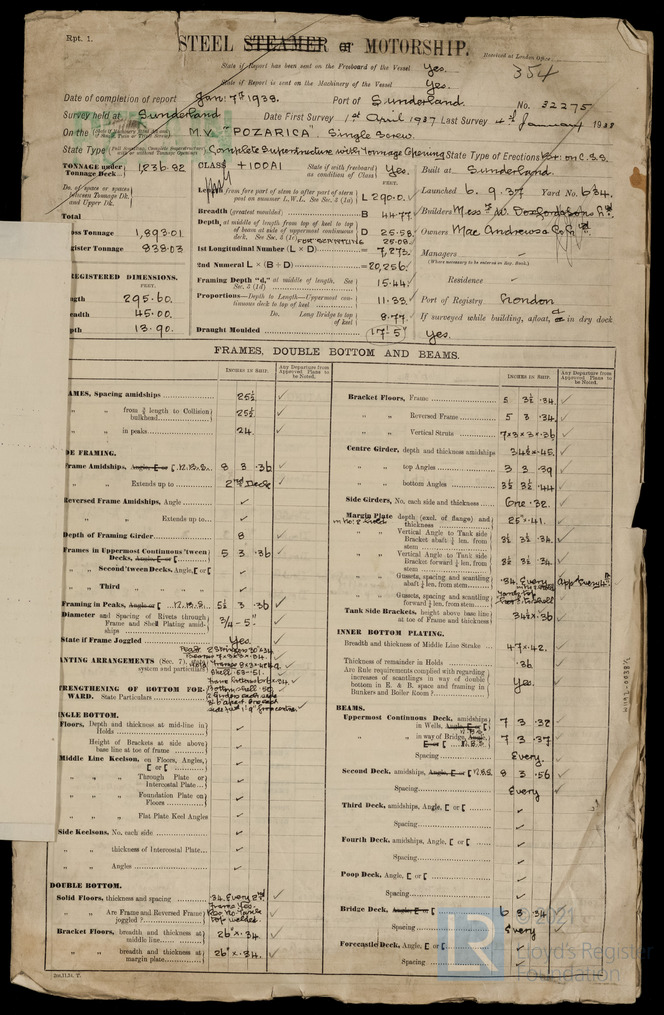 Rpt. 1.
STEEL STEAMER or MOTORSHIP.
Received at London Office
State if Report has been sent on the Freeboard of the Vessel Yes.
State if Report is sent on the Machinery of the Vessel Yes.
354
Date of completion of report Jan: 7th 1938. Port of Sunderland. No. 32275
Survey held at Sunderland Date First Survey 1st April 1937 Last Survey 4th January 1938
On the M.V. "POZARICA". Single Screw.
State Type Complete Superstructure with Tonnage Opening State Type of Erections
TONNAGE under Tonnage Deck 1,236.82
CLASS +100A1 State if with freeboard as condition of Class Yes.
Built at Sunderland
Do. of space or spaces between Tonnage Dk. and Upper Dk.
Total
oss Tonnage 1,893.01
gister Tonnage 838.03
REGISTERED DIMENSIONS.
FEET.
ngth 295.60.
eadth 45.00.
pth 13.90.
Length from fore part of stem to after part of stern post on summer L.W.L. See Sec. 3 (1a) L 290.0
Breadth (greatest moulded) B 44.77
Depth, at middle of length from top of keel to top of beam at side of uppermost continuous deck. See Sec. 3 (1c) D 25.58
FOR SCANTLING 25.08
1st Longitudinal Number (L × D) = 7,273.
2nd Numeral L × (B + D) = 20,256.
Framing Depth "d," at middle of length. See Sec. 3 (1d) 15.44
Proportions—Depth to Length—Uppermost continuous deck to top of keel 11.33
Do. Long Bridge to top of keel 8.77
Draught Moulded 17'.5"
Launched 6. 9. 37 Yard No. 634.
Builders Messrs W. Doxford & Sons Ltd.
Owners Mac Andrews & Co. Ltd.
Managers
(Where necessary to be entered in Reg. Book.)
Residence
Port of Registry London
If surveyed while building, afloat, or in dry dock
Yes.
FRAMES, DOUBLE BOTTOM AND BEAMS.
INCHES IN SHIP.
Any Departure from Approved Plans to be Noted.
INCHES IN SHIP.
Any Departure from Approved Plans to be Noted.
AMES, Spacing amidships 25½ ✓
" " from ⅗ length to Collision bulkhead 25½ ✓
" " in peaks 24. ✓
DE FRAMING.
Frame Amidships, Angle, E or [ 8 3 .36 ✓
" " Extends up to 2nd Deck ✓
Reversed Frame Amidships, Angle ✓
" " Extends up to ✓
Depth of Framing Girder 8 ✓
Frames in Uppermost Continuous 'tween Decks, Angle, E or [ 5 3 .36 ✓
" " Second 'tween Decks, Angle, [ or [ ✓
" " Third " " ✓
Framing in Peaks, Angle or [ 5½ 3 .36 ✓
Diameter and Spacing of Rivets through Frame and Shell Plating amidships 3/4 - 5" ✓
State if Frame Joggled Yes.
ANTING ARRANGEMENTS (Sec. 7), system and particulars
STRENGTHENING OF BOTTOM FORWARD. State Particulars
NGLE BOTTOM.
Floors, Depth and thickness at mid-line in Holds ✓
Height of Brackets at side above base line at toe of frame ✓
Middle Line Keelson, on Floors, Angles, [ or [ ✓
" " Through Plate or Intercostal Plate ✓
" " Foundation Plate on Floors ✓
" " Flat Plate Keel Angles ✓
Side Keelsons, No. each side ✓
" " thickness of Intercostal Plate ✓
" " Angles ✓
DOUBLE BOTTOM.
Solid Floors, thickness and spacing .34. Every 2nd
" " Are Frame and Reversed Frame joggled?
Bracket Floors, breadth and thickness at middle line 26" x .34. ✓
" " breadth and thickness at margin plate 26" x .34. ✓
Bracket Floors, Frame 5 3½ .34. ✓
" " Reversed Frame 5 3 .34. ✓
" " Vertical Struts 7 x 3 x 3 x .36 ✓
Centre Girder, depth and thickness amidships 34½ x .45. ✓
" " top Angles 3 3 .39 ✓
" " bottom Angles 3½ 3½ .44 ✓
Side Girders, No. each side and thickness One .32. ✓
Margin Plate depth (excl. of flange) and thickness 25" x .41. ✓
" " Vertical Angle to Tank side Bracket abaft ¼ len. from stem 3½ 3½ .34. ✓
" " Vertical Angle to Tank side Bracket forward ¼ len. from stem 3½ 3½ .34. ✓
" " Gussets, spacing and scantling abaft ¼ len. from stem .34. Every
" " Gussets, spacing and scantling forward ¼ len. from stem
Tank Side Brackets, height above base line at toe of Frame and thickness 34½ x .36 ✓
INNER BOTTOM PLATING.
Breadth and thickness of Middle Line Strake 47 x .42. ✓
Thickness of remainder in Holds .36 ✓
Are Rule requirements complied with regarding increases of scantlings in way of double bottom in E. & B. space and framing in Bunkers and Boiler Room? Yes. ✓
BEAMS.
Uppermost Continuous Deck, amidships in Wells, Angle, E or [ 7 3 .32 ✓
" " in way of Bridge, Angle, E or [ 7 3 .37 ✓
Spacing Every. ✓
Second Deck, amidships, Angle, E or [ 8 3 .56 ✓
Spacing Every ✓
Third Deck, amidships, Angle, [ or [ ✓
Spacing
Fourth Deck, amidships, Angle, [ or [ ✓
Spacing
Poop Deck, Angle, [ or [ ✓
Spacing
Bridge Deck, Angle, E or [ 6 3 .34 ✓
Spacing Every
Forecastle Deck, Angle, [ or [ ✓
Spacing ✓
LR
© 2021
Lloyd's Register
Foundation